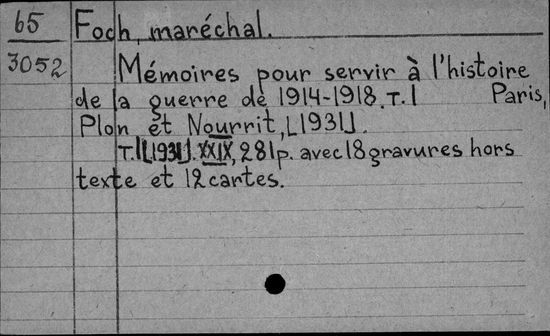 65 Foch, maréchal.
3052 Mémoires pour servir à l'histoire
de la guerre de 1914-1918. T. I Paris,
Plon et Nourrit, [1931].
T. I [1931]. XXIX, 281p. avec 18 gravures hors
texte et 12 cartes.